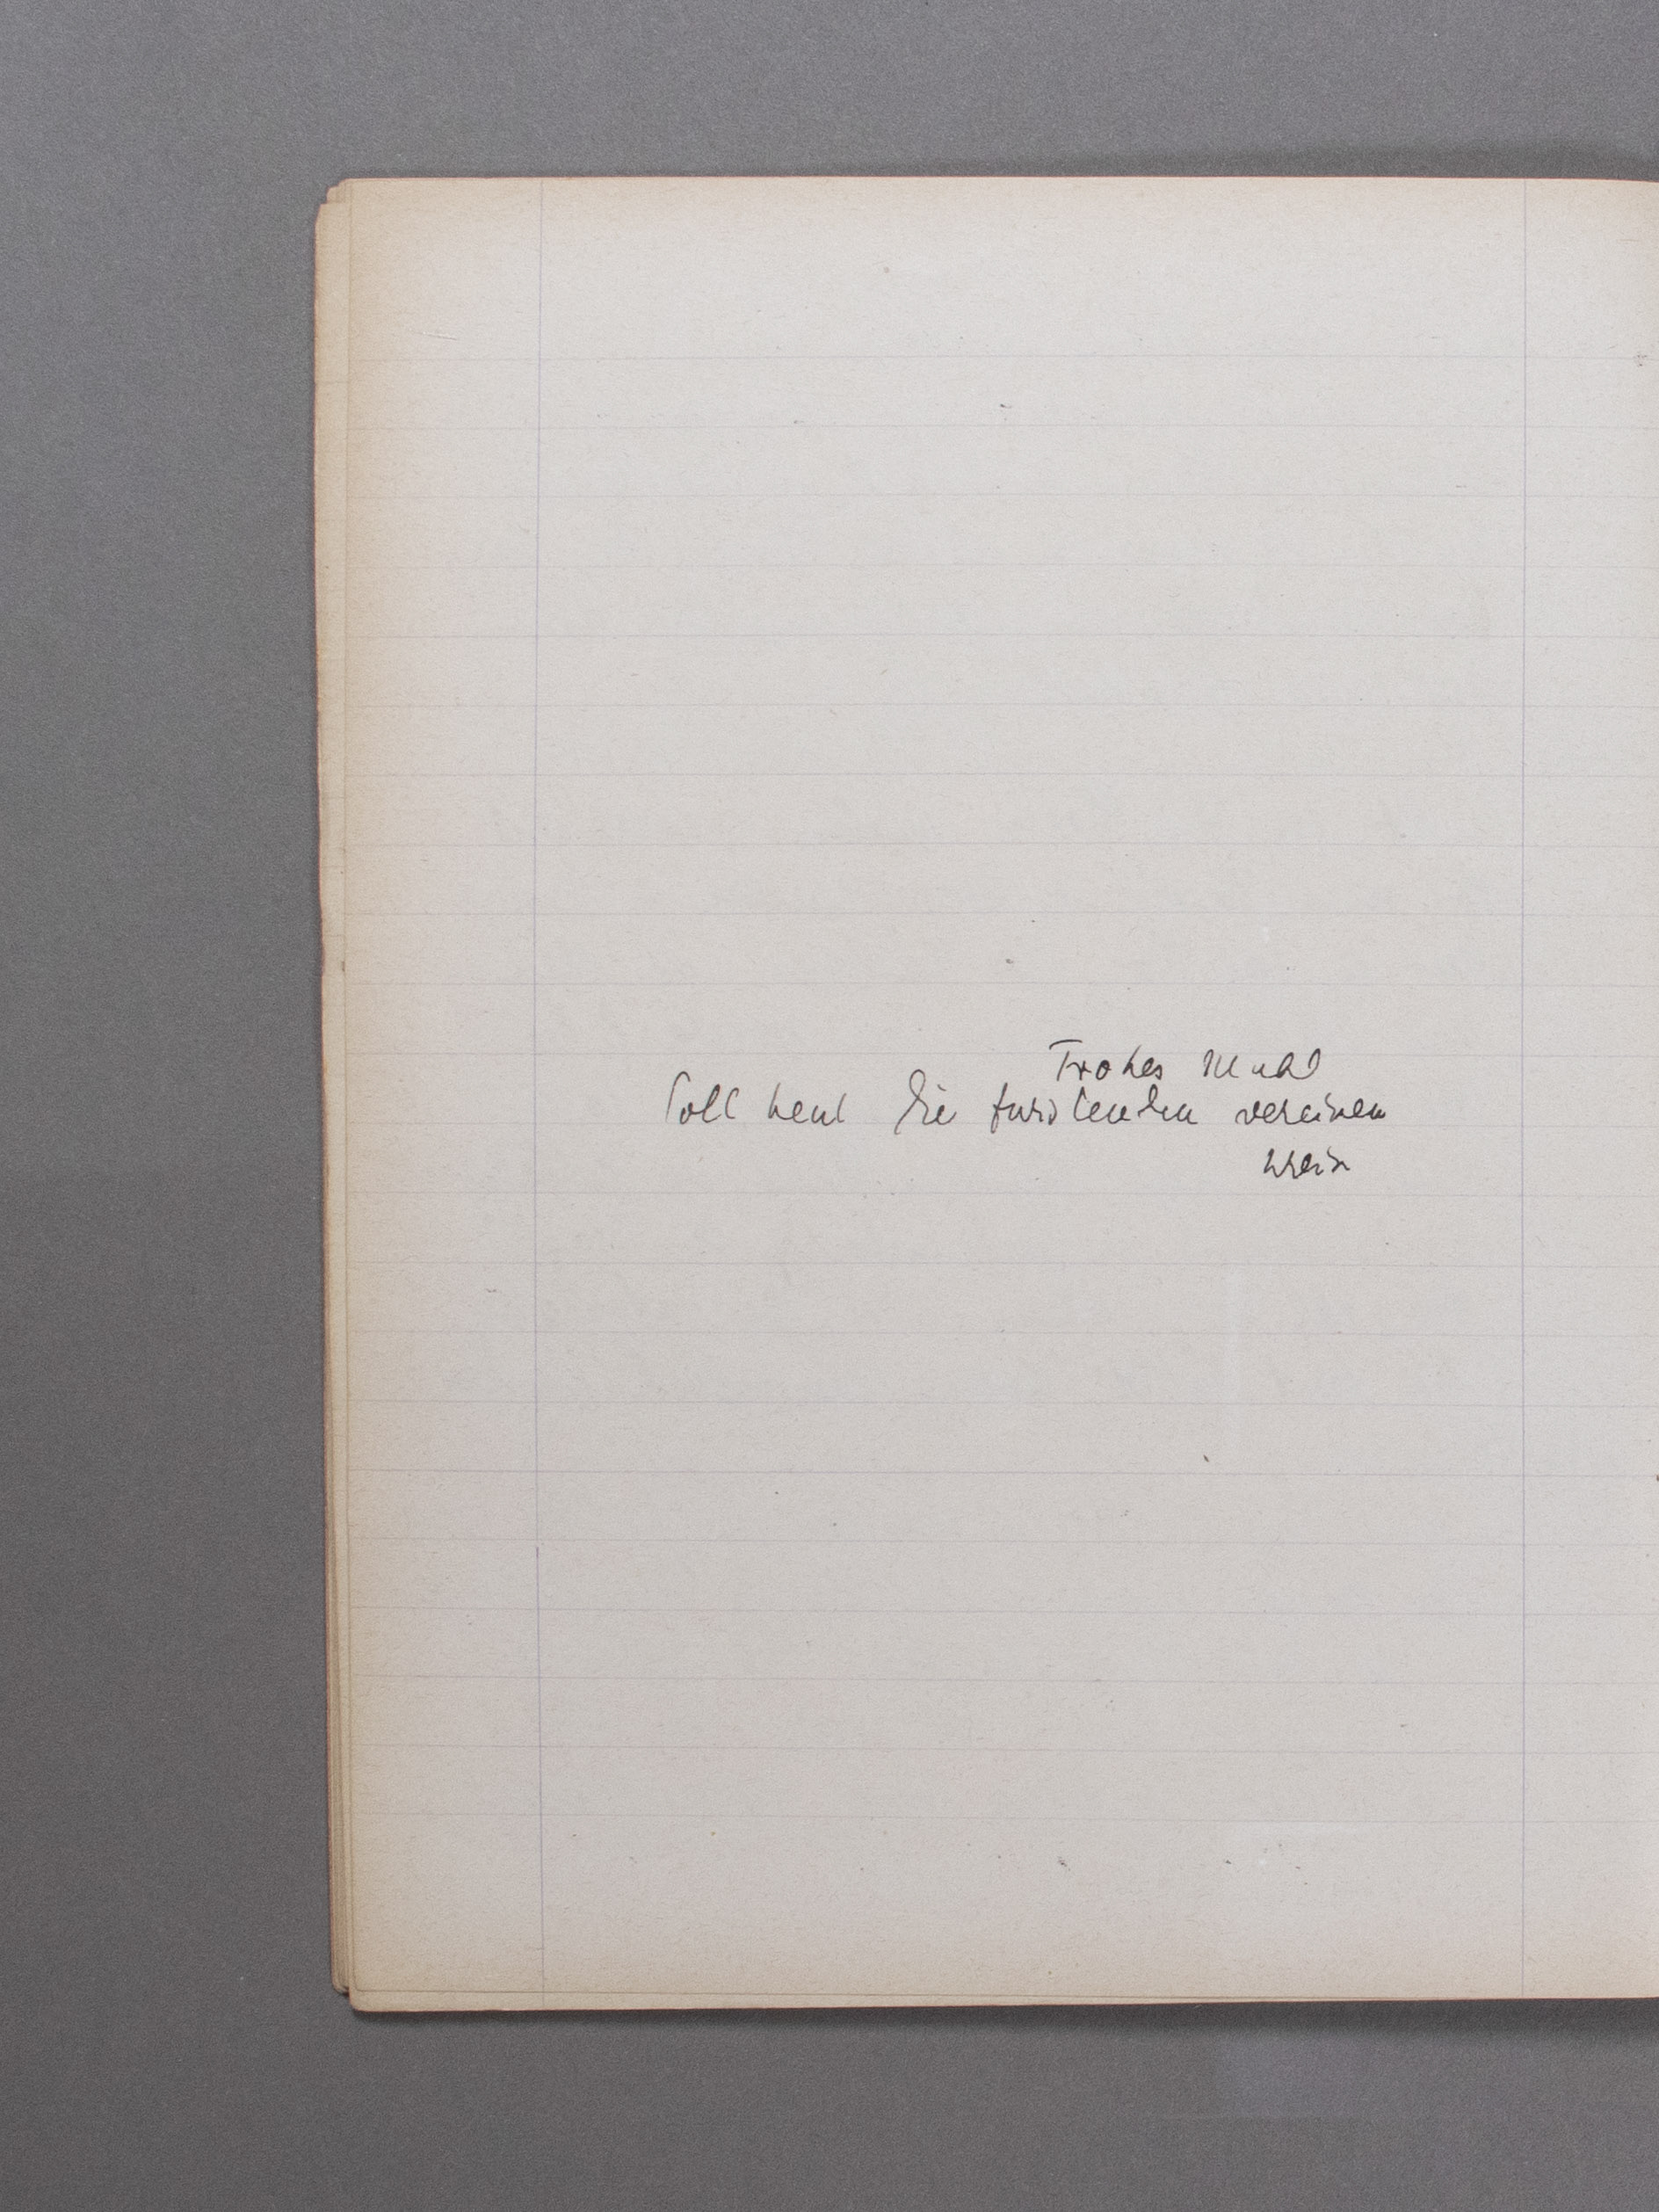 Frohes Mahl
Soll heut die furstenden vereinen
Wein